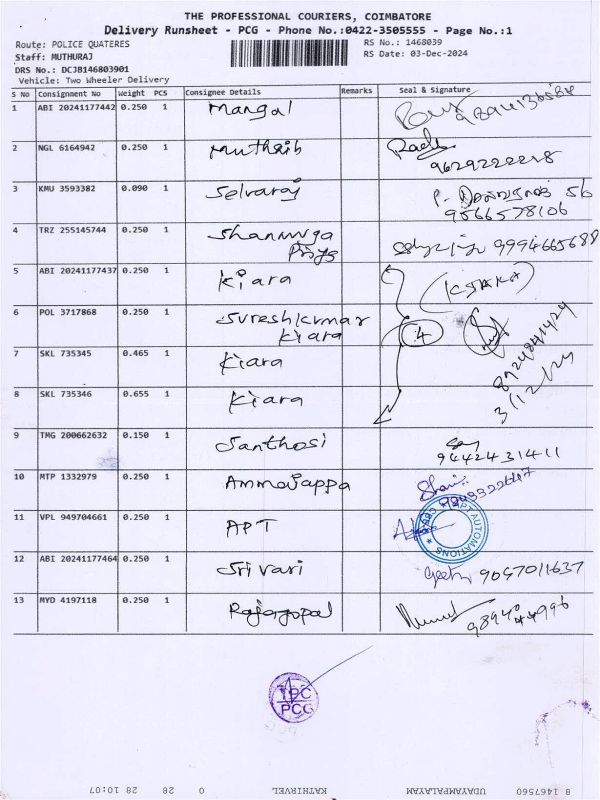 THE PROFESSIONAL COURIERS, COIMBATORE
Delivery Runsheet - PCG - Phone No.:0422-3505555 - Page No.:1
Route: POLICE QUATERES RS No.: 1468039
Staff: MUTHURAJ RS Date: 03-Dec-2024
DRS No.: DCJB146803901
Vehicle: Two Wheeler Delivery
S No Consignment No Weight PCS Consignee Details Remarks Seal & Signature
1 ABI 20241177442 0.250 1 Mangal
2 NGL 6164942 0.250 1
9629222228
3 KMU 3593382 0.090 1 Selvaraj
9566578106
4 TRZ 255145744 0.250 1 Shanmuga 9994665688
Priya
5 ABI 20241177437 0.250 1 Kiara
6 POL 3717868 0.250 1 Sureshkumar
Kiara 4
7 SKL 735345 0.465 1 Kiara
8924841424
8 SKL 735346 0.655 1 Kiara 3/12/24
9 TMG 200662632 0.150 1 Santhosi
9442431411
10 MTP 1332979 0.250 1 Ammajappa
11 VPL 949704661 0.250 1 APT
APT AUTOMATIONS
12 ABI 20241177464 0.250 1 Srivari
9047011637
13 MYD 4197118 0.250 1 Rajagopal
TPC
PCG
8 1467560 UDAYAMPALAYAM KATHIRVEL 0 28 28 10:07